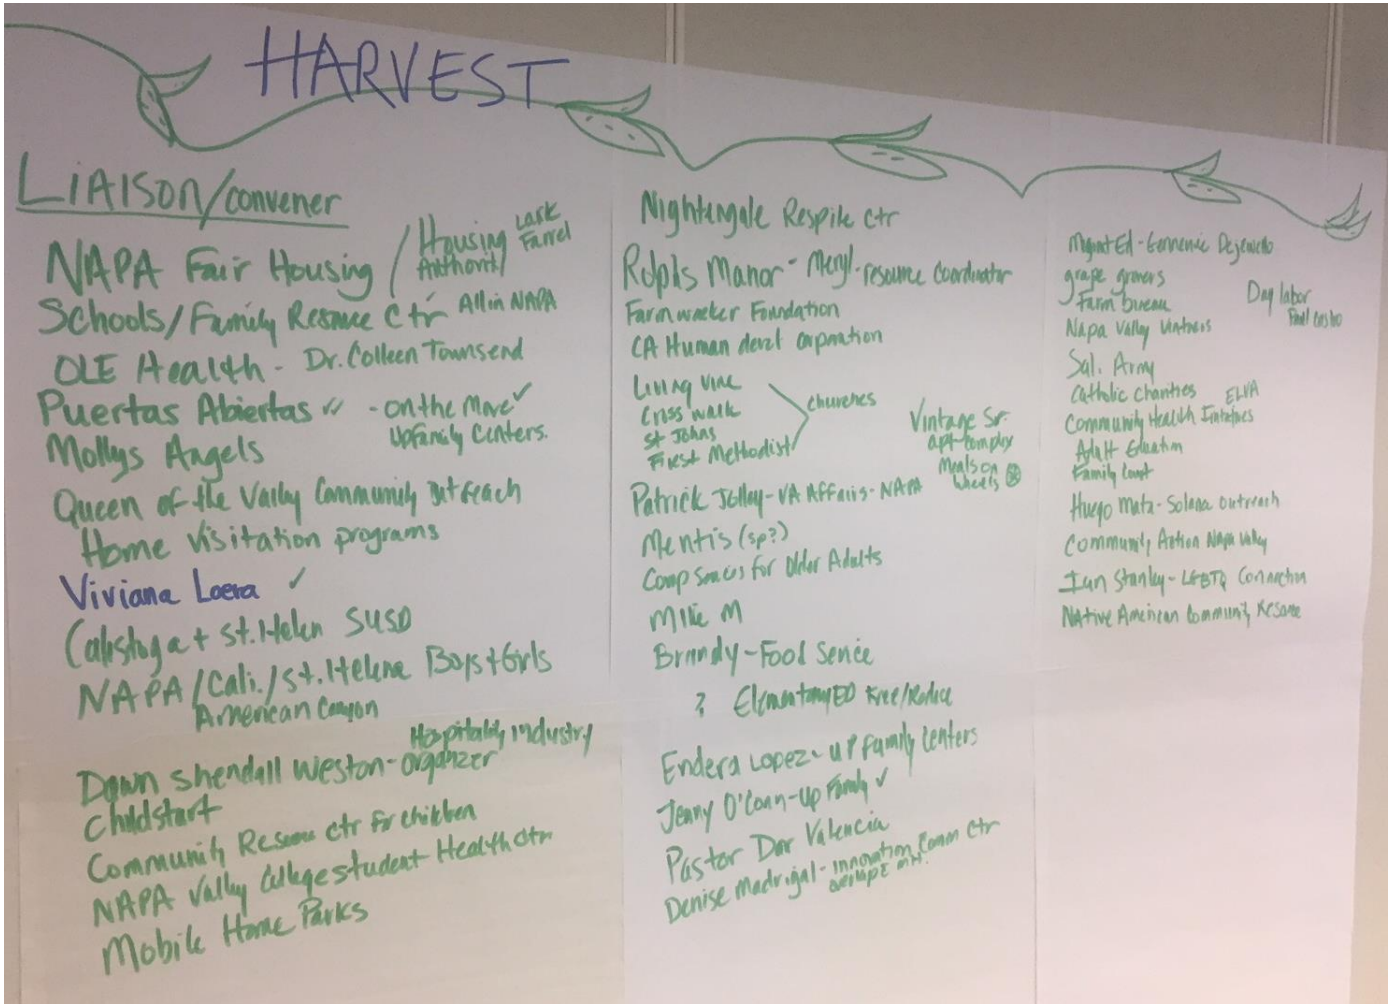 HARVEST
LIAISON/convener
NAPA Fair Housing / Housing Authority Lark Farrel
Schools/Family Resource Ctr All in NAPA
OLE Health - Dr. Colleen Townsend
Puertas Abiertas - on the Move
UpFamily Centers.
Mollys Angels
Queen of the Valley Community outreach
Home visitation programs
Viviana Loera
Calistoga + St. Helen SUSD
NAPA/Cali./St. Helena Boys + Girls
American Canyon
Hospitality industry
Dawn Shendall Weston - organizer
Childstart
Community Resource ctr for children
NAPA Valley College student Health ctr
Mobile Home Parks
Nightengale Respite ctr
Rolphs Manor - Meryl - resource coordinator
Farmworker Foundation
CA Human corporation
Living vine
Cross walk
St Johns
First Methodist
churches
Vintage Sr.
apt complex
Meals on
wheels
Patrick Jolley - VA Affairs - NAPA
Mentis (sp?)
Comp Services for Older Adults
Millie M
Brandy - Food Service
? Elementary ED Free/Reduce
Endera Lopez - UP family centers
Jenny O'Conn - Up Family
Pastor Dar Valencia
Denise Madrigal - innovation Comm Ctr
MH.
Migrant Ed -
grape growers
Farm bureau
Day labor
Napa Valley Vintners
Sal. Army
Catholic Charities
Community Health Initiatives
Adult Education
Family Court
Huego Mata - Solano outreach
Community Action Napa Valley
Ian Stanley - LGBTQ Connection
Native American Community Resource